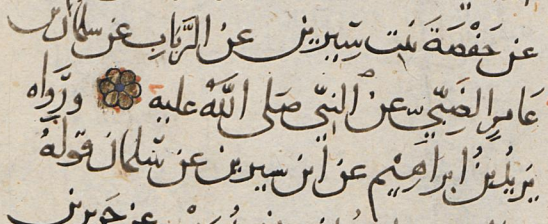 عن حَفْصَةَ بنت سِيرين عن الرَّبَابِ عن سلمان بن
عَامِرٍ الضَبِّيِّ عن النبيّ صَلى اللَّه عليه ورَوَاه
يَزِيدُ بنُ ابراهِيْم عن ابن سيرين عن سَلمان قولَهُ
عن